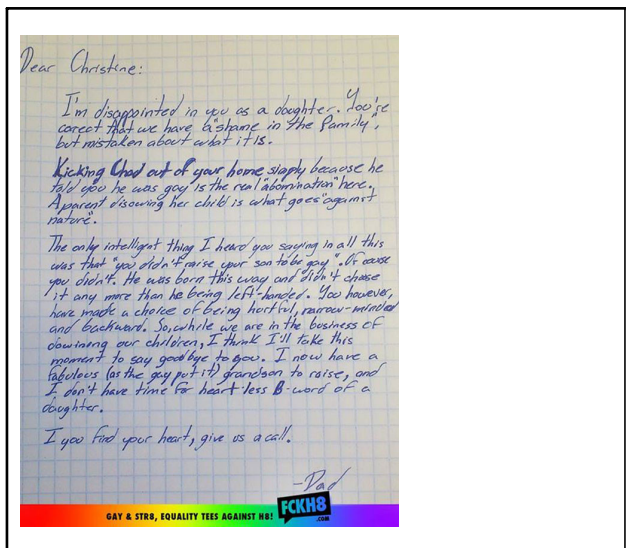 Dear Christine:
I'm disappointed in you as a daughter. You're
corect that we have a "shame in the family",
but mistaken about what it is.
Kicking Chad out of your home simply because he
told you he was gay is the real "abomination" here.
A parent disowing her child is what goes "against
nature".
The only intelligent thing I heard you saying in all this
was that "you didn't raise your son to be gay". Of couse
you didn't. He was born this way and didn't choose
it any more than he being left-handed. You however,
have made a choice of being hurtful, narrow-minded
and backward. So, while we are in the business of
disowining our children, I think I'll take this
moment to say goodbye to you. I now have a
fabulous (as the gay put it) grandson to raise, and
I don't have time for heart-less B-word of a
daughter.
I you find your heart, give us a call.
-Dad
GAY & STR8, EQUALITY TEES AGAINST H8! FCKH8
.COM